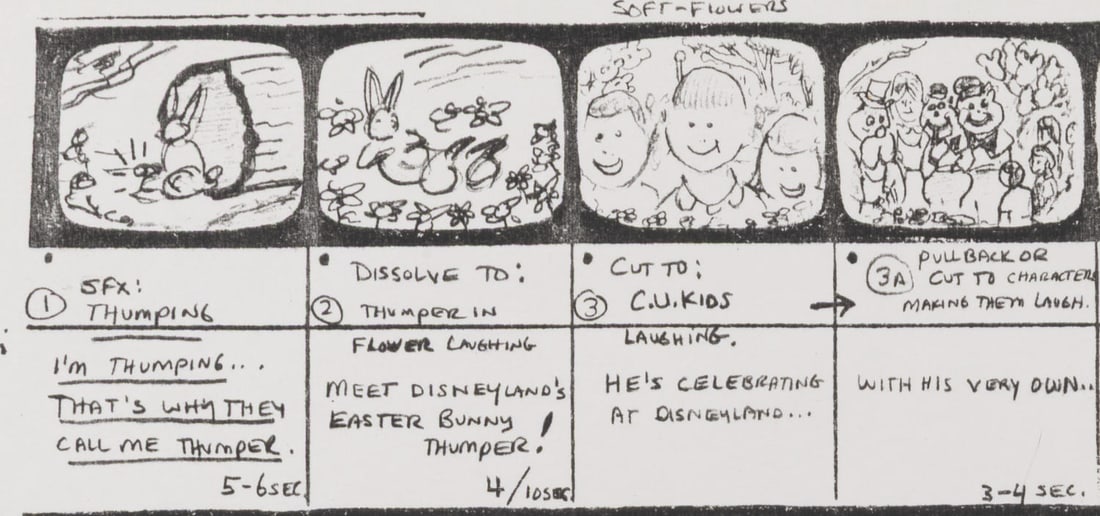 SOFT-FLOWERS
SFX:
1 THUMPING
I'M THUMPING...
THAT'S WHY THEY
CALL ME THUMPER.
5-6 SEC.
DISSOLVE TO:
2 THUMPER IN
FLOWER LAUGHING
MEET DISNEYLAND'S
EASTER BUNNY
THUMPER!
4/10 SEC.
CUT TO:
3 C.U. KIDS
LAUGHING.
HE'S CELEBRATING
AT DISNEYLAND...
3A PULL BACK OR
CUT TO CHARACTERS
MAKING THEM LAUGH.
WITH HIS VERY OWN..
3-4 SEC.